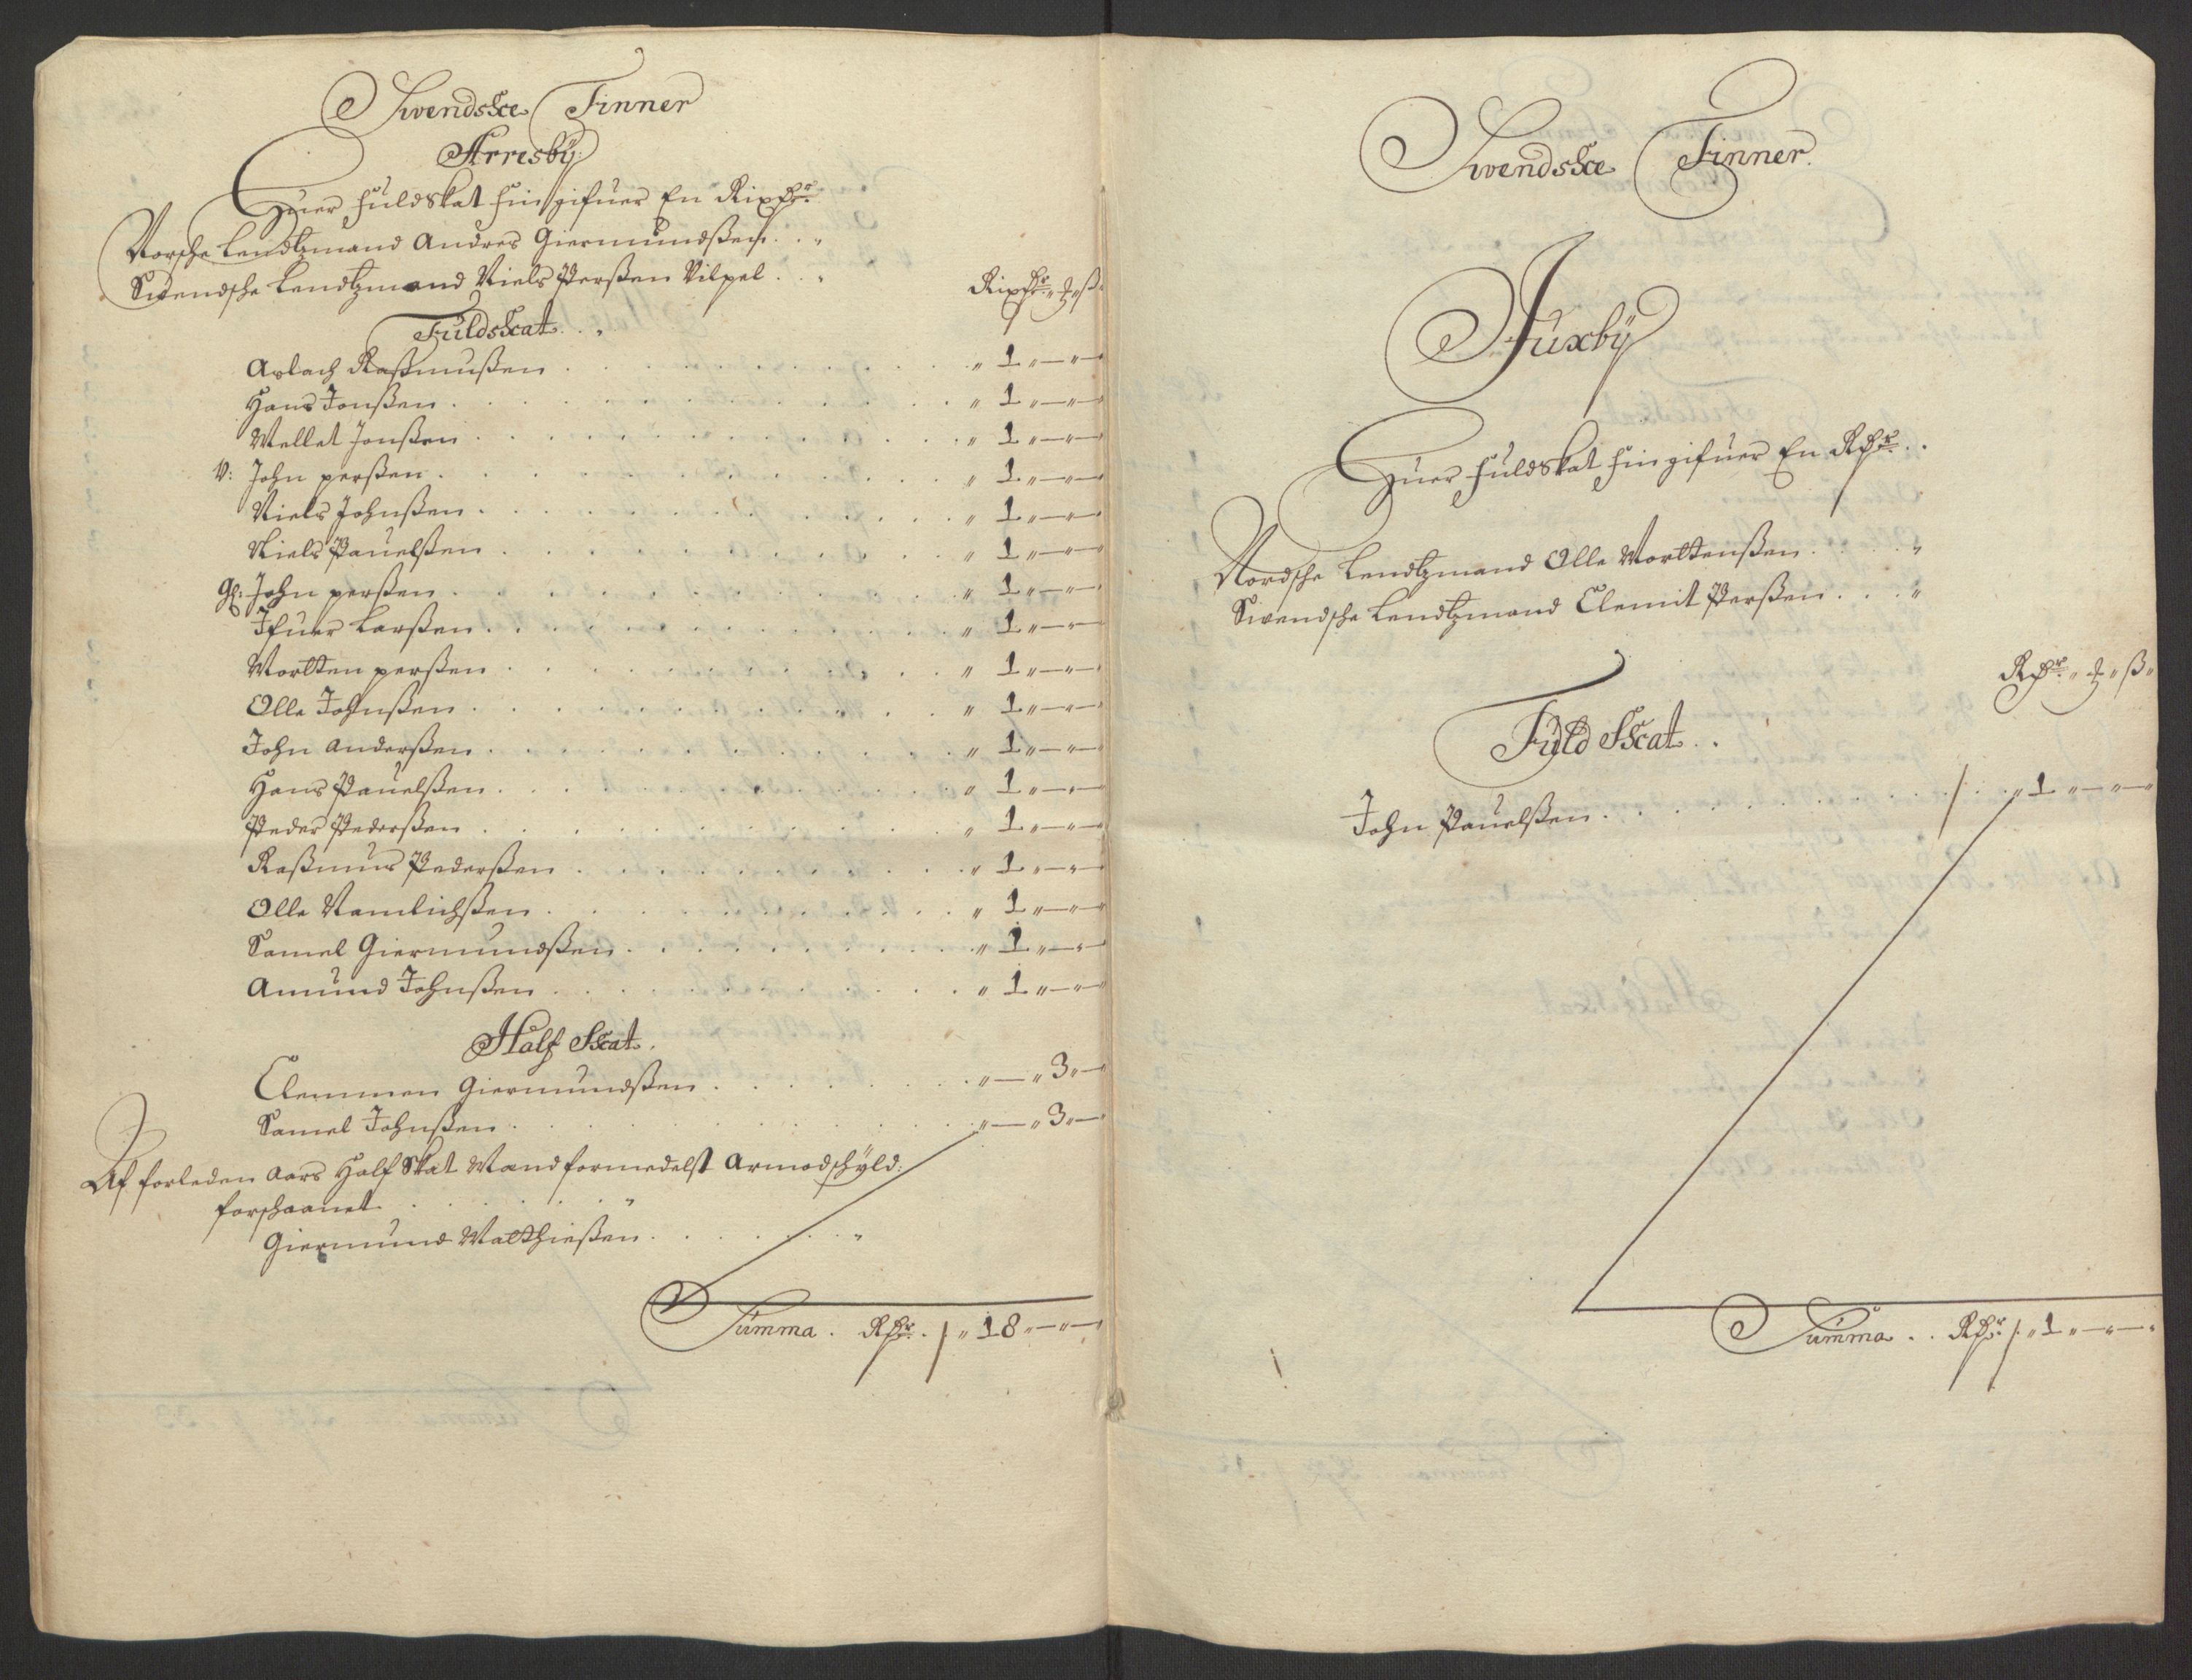 Swendske Finner
Arresby
Huer fuldskat hin gifuer En Rixdr
Norsche Lendtzmand Andres Giermundßen
Swendsche Lendtzmand Niels Perßen Vilpel
Rixdr " ß
Fuldskat
Aslach Raßmußen " 1 " — " —
Hans Jonßen " 1 " — " —
Mellet Jonßen " 1 " — " —
V: John perßen " 1 " — " —
Niels Johnßen " 1 " — " —
Niels Pauelßen " 1 " — " —
Gl: John perßen " 1 " — " —
Ifuer Larßen " 1 " — " —
Mortten perßen " 1 " — " —
Olle Johnßen " 1 " — " —
John Anderßen " 1 " — " —
Hans Pauelßen " 1 " — " —
Peder Pederßen " 1 " — " —
Raßmus Pederßen " 1 " — " —
Olle Namlichßen " 1 " — " —
Samel Giermundßen " 1 " — " —
Amund Johnßen " 1 " — " —
Half Skat
Clemmen Giermundßen " — " 3 " —
Samel Johnßen " — " 3 " —
Af forleden Aars Half Skat Mand formedelst Armodschyld:
forschaanet
Giermund Matthießen
Summa . Rdr . / " 18 " — " —
Swendske Finner
Juxby
Huer fuldskat hin gifuer En Rdr
Nordsche Lendtzmand Olle Morttenßen
Swendsche Lendtzmand Clemit Perßen
Rdr " ß
Fuld Skat
John Pauelßen / " 1 " — " —
Summa . . Rdr / " 1 " — " —